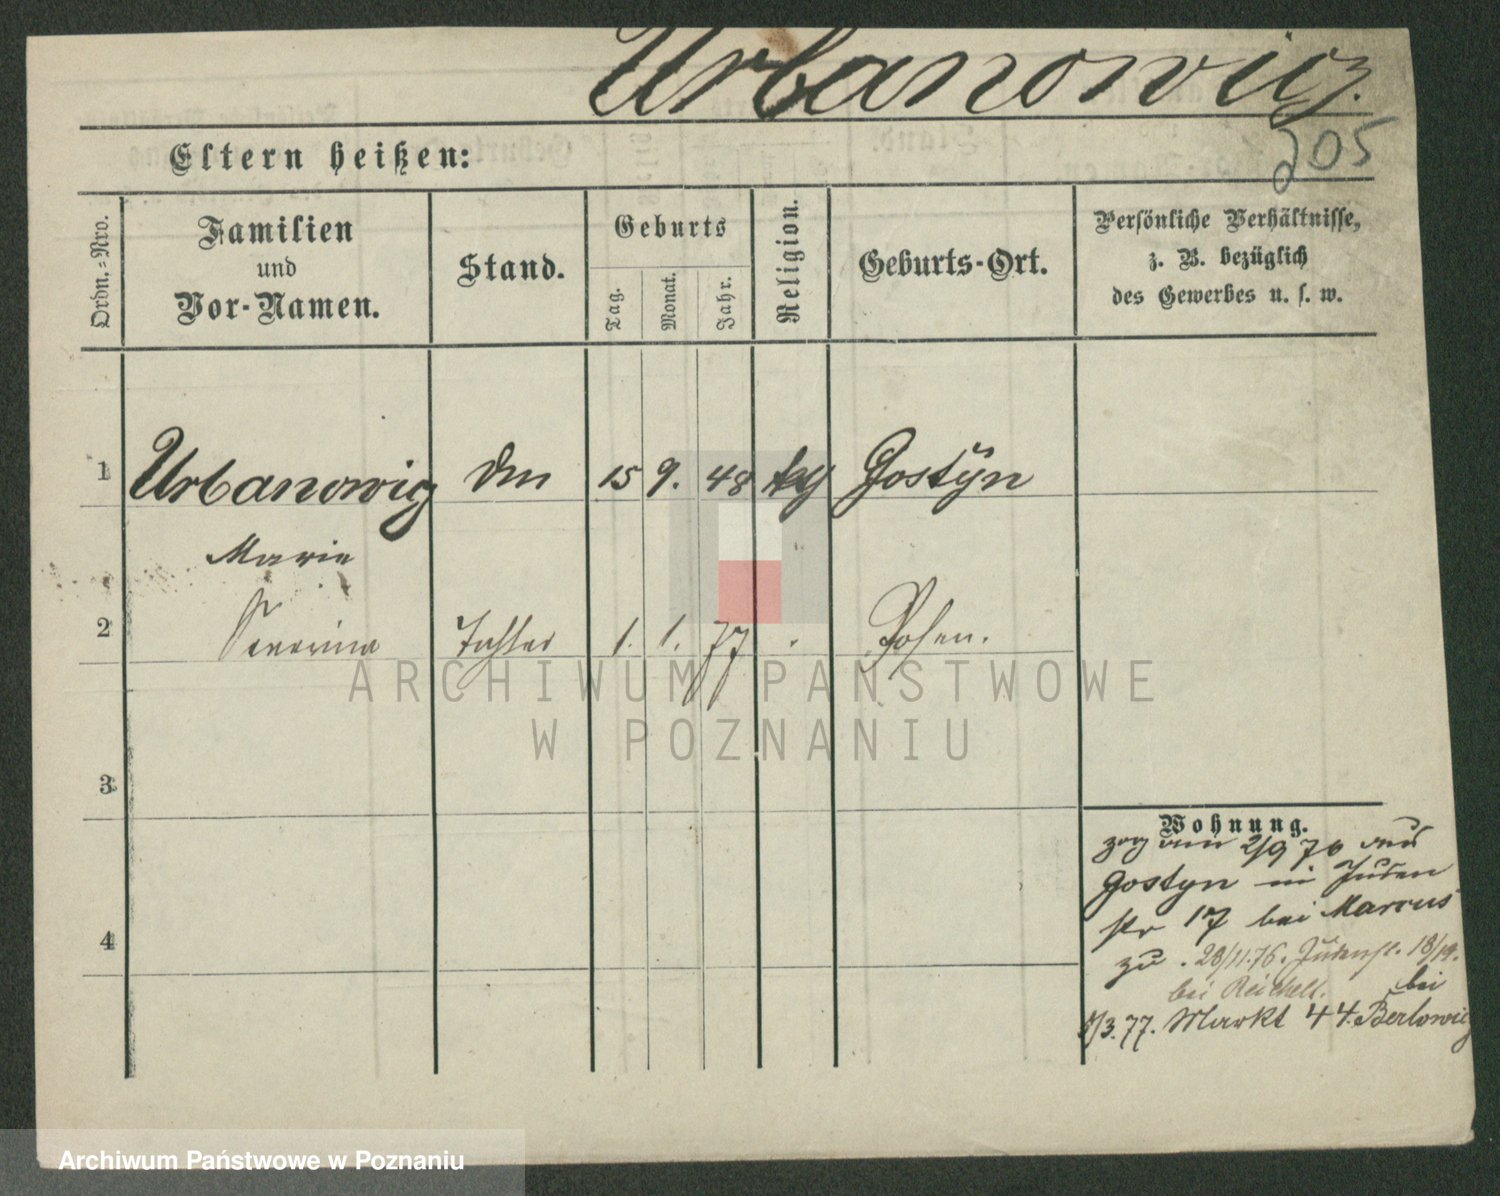 Urbanowicz.
205
Eltern heißen:
Ordn.-Nro.
Familien
und
Vor-Namen.
Stand.
Geburts
Tag.
Monat.
Jahr.
Religion.
Geburts-Ort.
Persönliche Verhältnisse,
z. B. bezüglich
des Gewerbes u. s. w.
1 Urbanowicz 15 9. 48 Gostÿn
Marie
2 Severina Tochter 1. 1. 77 Posen.
3
4
Wohnung.
zog am 2/9 76 aus
Gostyn in Juden
str 17 bei Marcus
zu . 28/11.76. Judenst. 18/19.
bei Reichelt. bei
/3.77. Markt 44. Berlowicz
ARCHIWUM PAŃSTWOWE
W POZNANIU
Archiwum Państwowe w Poznaniu